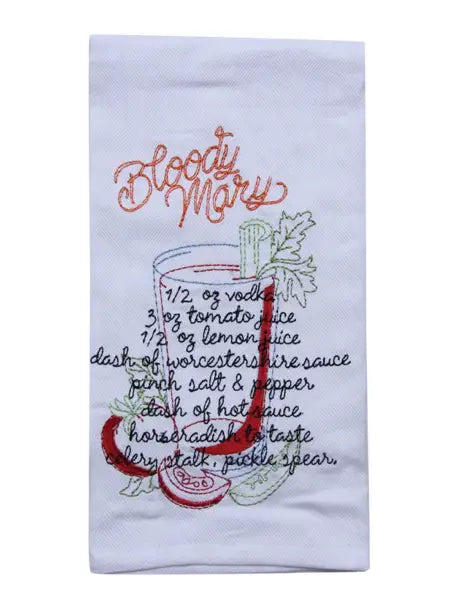 Bloody
Mary
1/2 oz vodka
3 oz tomato juice
1/2 oz lemon juice
dash of worcestershire sauce
pinch salt & pepper
dash of hot sauce
horseradish to taste
celery stalk, pickle spear.